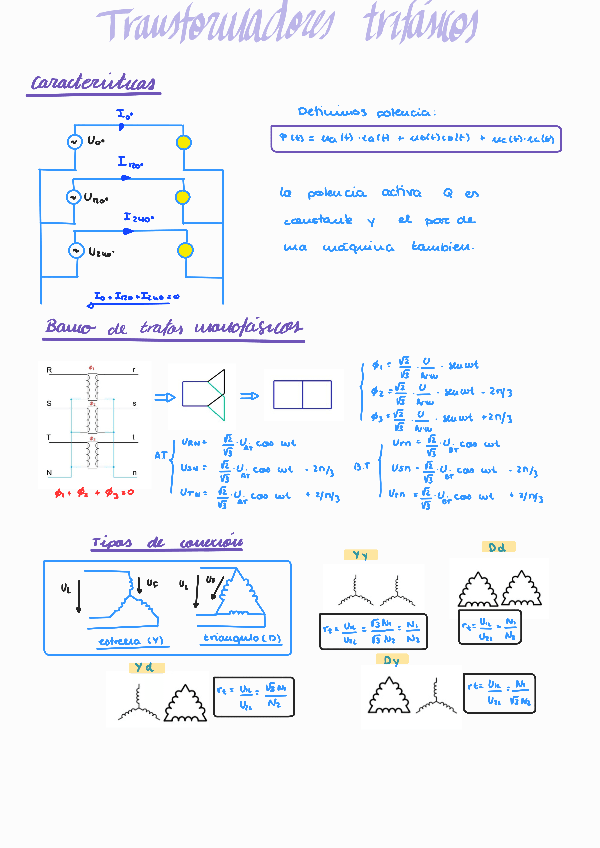 Transformadores trifásicos
Características
I0°
U0°
I120°
U120°
I240°
U240°
I0 + I120 + I240 = 0
Definimos potencia:
P(t) = ua(t)·ia(t) + ub(t)ib(t) + uc(t)·ic(t)
La potencia activa Q es
constante y el par de
una máquina también.
Banco de trafos monofásicos
R ϕ1 r
S ϕ2 s
T ϕ3 t
N n
ϕ1 + ϕ2 + ϕ3 = 0
ϕ1 = √2/√3 · U/N·w · sen wt
ϕ2 = √2/√3 · U/N·w · sen wt - 2π/3
ϕ3 = √2/√3 · U/N·w · sen wt + 2π/3
AT
URN = √2/√3 · UAT cos wt
USN = √2/√3 · UAT cos wt - 2π/3
UTN = √2/√3 · UAT cos wt + 2π/3
B.T
Urn = √2/√3 · UBT cos wt
Usn = √2/√3 · UBT cos wt - 2π/3
Utn = √2/√3 · UBT cos wt + 2π/3
Tipos de conexión
UL
UL
estrella (Y)
triángulo (D)
Yy
rt = U1L/U2L = √3 N1/√3 N2 = N1/N2
Dd
rt = U1L/U2L = N1/N2
Yd
rt = U1L/U2L = √3 N1/N2
Dy
rt = U1L/U2L = N1/√3 N2